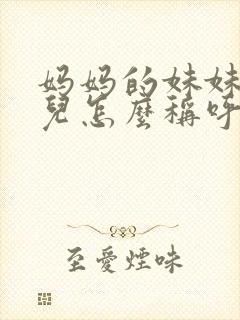 妈妈的妹妹
兒怎麼稱呼
至愛煙味